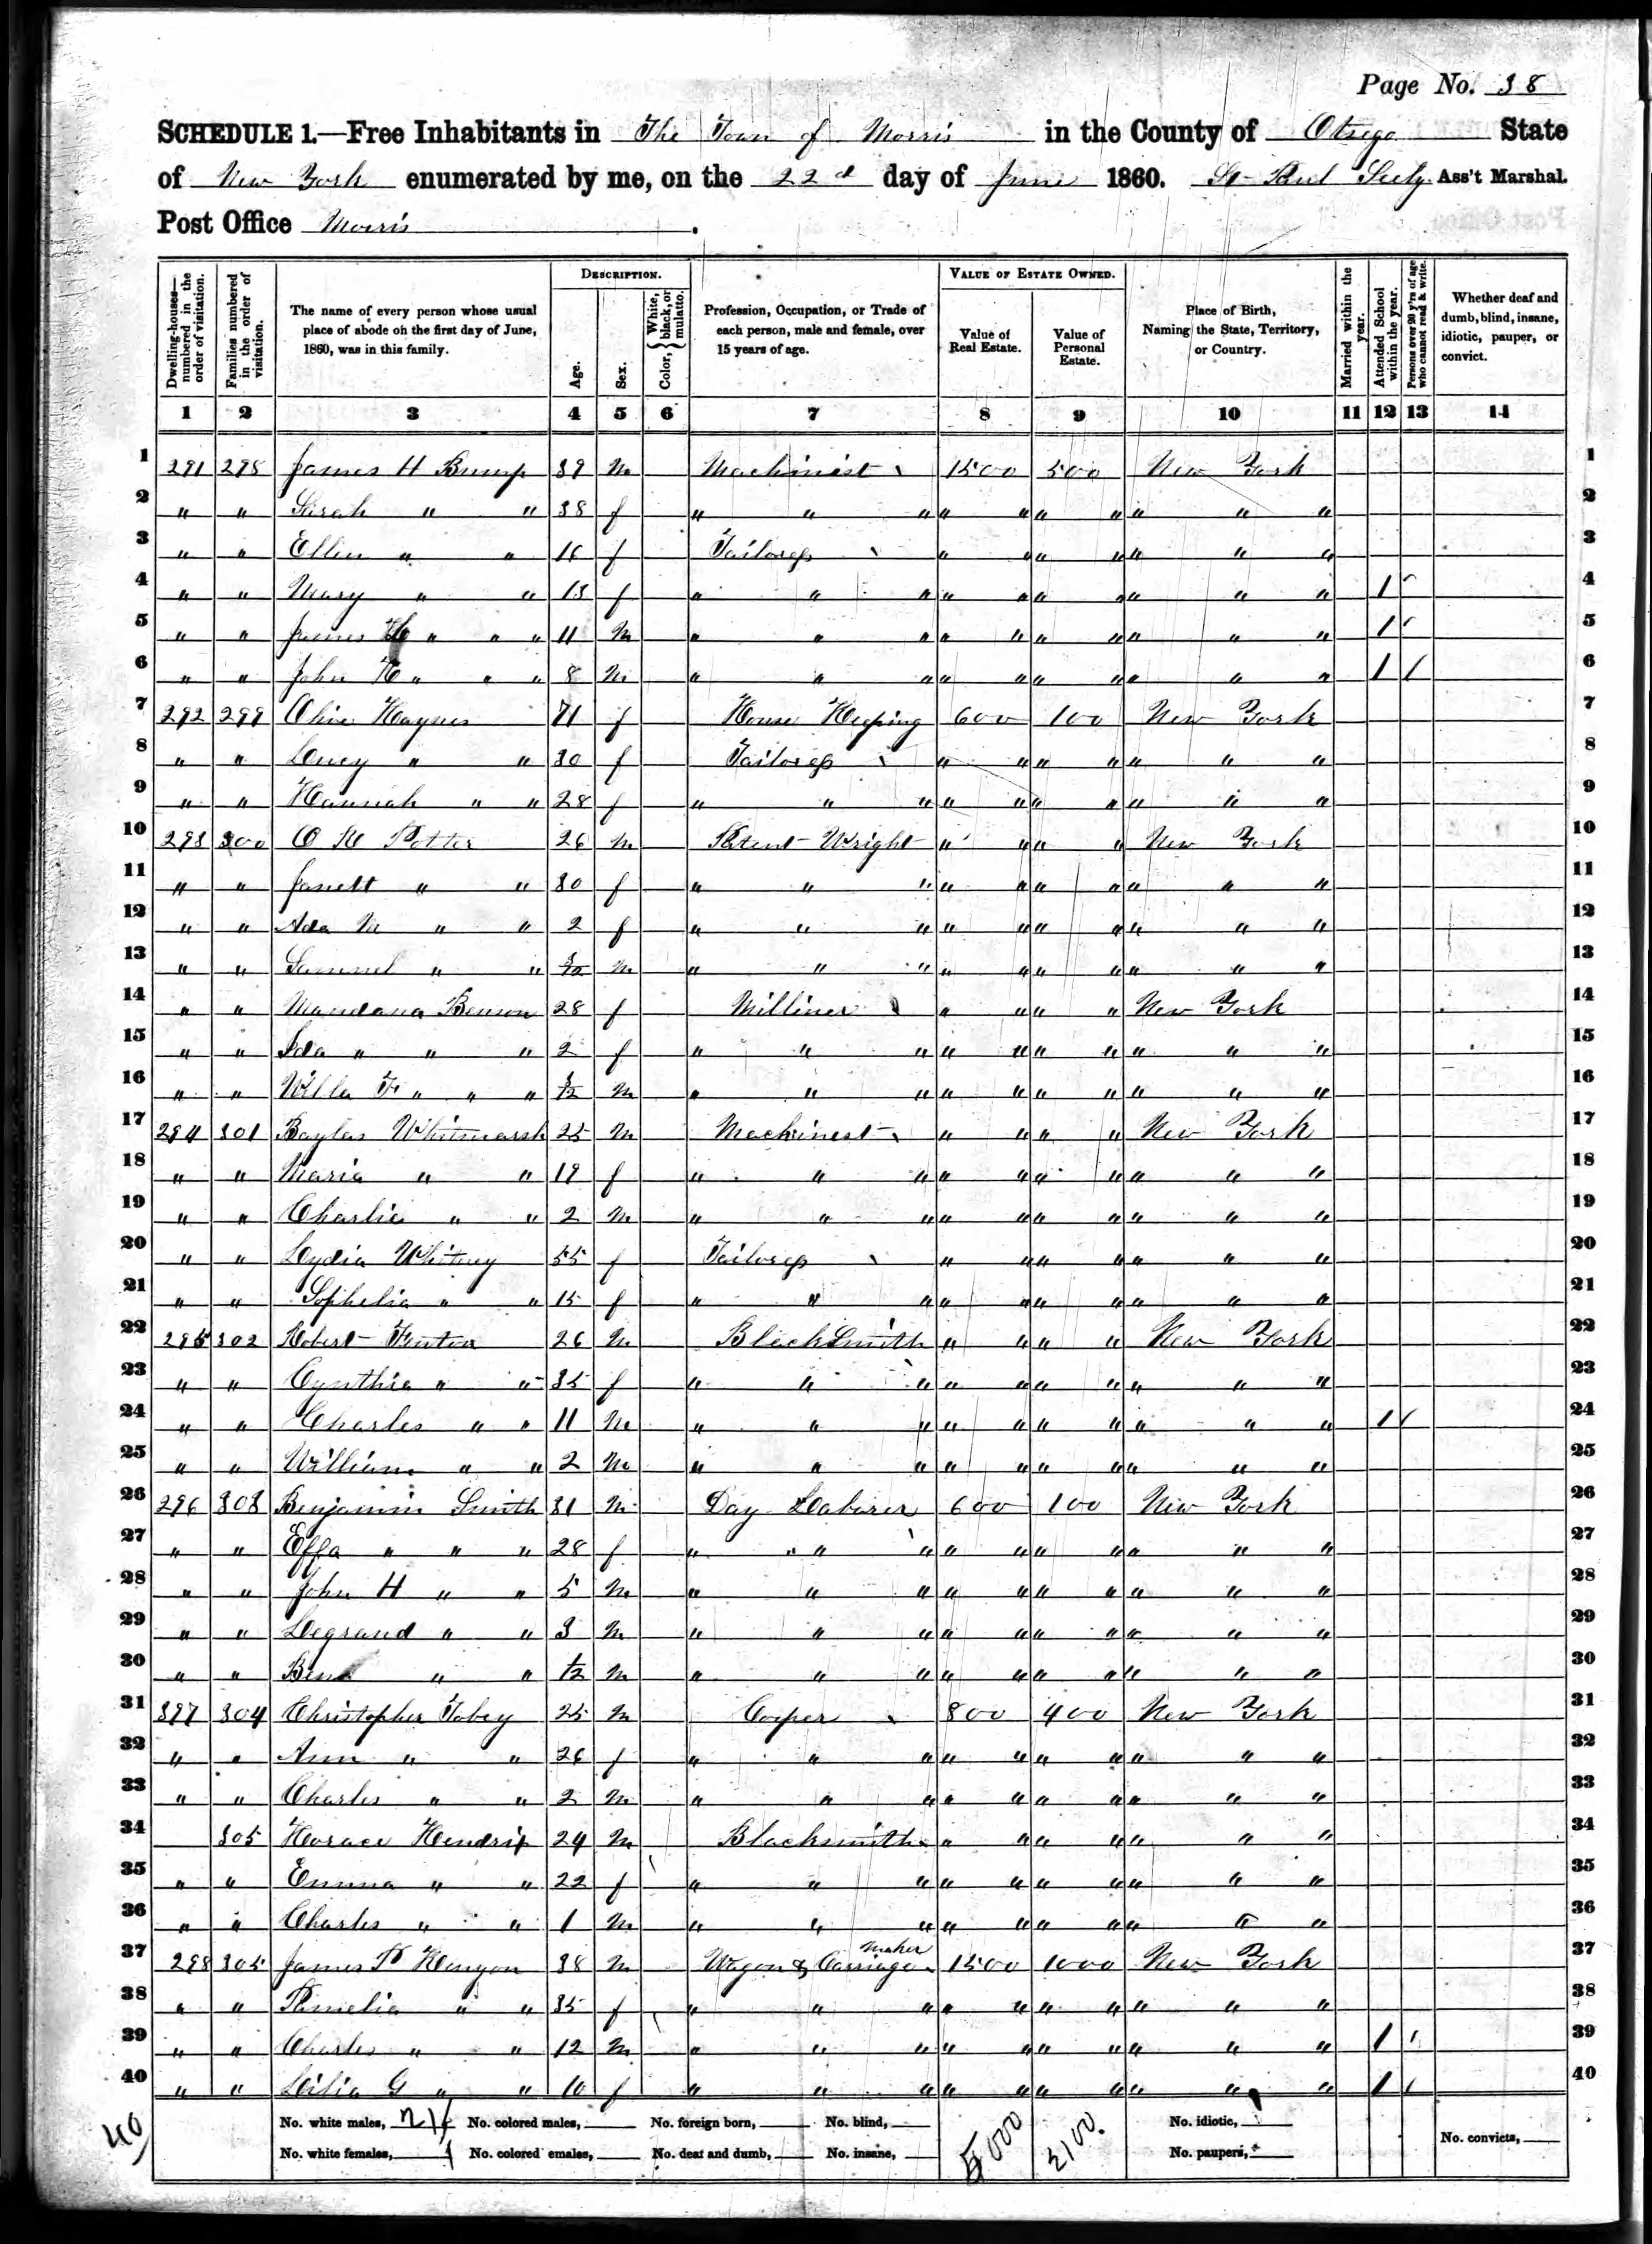 Page No. 38
SCHEDULE 1.—Free Inhabitants in The Town of Morris in the County of Otsego State
of New York enumerated by me, on the 22d day of June 1860. Seely Ass't Marshal.
Post Office Morris.
Dwelling-houses—numbered in the order of visitation.
Families numbered in the order of visitation.
The name of every person whose usual place of abode on the first day of June, 1860, was in this family.
DESCRIPTION.
Age.
Sex.
Color, { White, black, or mulatto.
Profession, Occupation, or Trade of each person, male and female, over 15 years of age.
VALUE OF ESTATE OWNED.
Value of Real Estate.
Value of Personal Estate.
Place of Birth, Naming the State, Territory, or Country.
Married within the year.
Attended School within the year.
Persons over 20 y'rs of age who cannot read & write.
Whether deaf and dumb, blind, insane, idiotic, pauper, or convict.
1 2 3 4 5 6 7 8 9 10 11 12 13 14
1 291 298 James H Bump 39 M Machinist 1500 500 New York 1
2 " " Sarah " " 38 f " " " " " " " " " " 2
3 " " Ellen " " 16 f Tailoress " " " " " " " 3
4 " " Mary " " 13 f " " " " " " " " " " 1 4
5 " " James " " " 11 M " " " " " " " " " " 1 5
6 " " John H " " " 8 M " " " " " " " " " " 1 / 6
7 292 299 Olive Haynes 71 f House Keeping 600 100 New York 7
8 " " Lucy " " 30 f Tailoress " " " " " " " 8
9 " " Hannah " " 28 f " " " " " " " " " " 9
10 293 300 O H Potter 26 M Patent Wright " " " " New York 10
11 " " Janett " " 30 f " " " " " " " " " " 11
12 " " Ada M " " 2 f " " " " " " " " " " 12
13 " " Samuel " " 3/12 M " " " " " " " " " " 13
14 " " Mandana Benson 28 f Milliner " " " " New York 14
15 " " Ida " " " 2 f " " " " " " " " " " 15
16 " " Willa F " " " M " " " " " " " " " " 16
17 294 301 Baylas Whitmarsh 25 M Machinest " " " " New York 17
18 " " Maria " " 19 f " " " " " " " " " " 18
19 " " Charlie " " 2 M " " " " " " " " " " 19
20 " " Lydia Whitney 55 f Tailoress " " " " " " " 20
21 " " Sophelia " " 15 f " " " " " " " " " " 21
22 295 302 Robert Fenton 26 M BlackSmith " " " " New York 22
23 " " Cynthia " " 35 f " " " " " " " " " " 23
24 " " Charles " " 11 M " " " " " " " " " " 1 / 24
25 " " William " " 2 M " " " " " " " " " " 25
26 296 303 Benjamin Smith 31 M Day Laborer 600 100 New York 26
27 " " Effa " " " 28 f " " " " " " " " " " " 27
28 " " John H " " 5 M " " " " " " " " " " 28
29 " " Legrand " " 3 M " " " " " " " " " " 29
30 " " " " 1/12 M " " " " " " " " " " 30
31 397 304 Christopher Tobey 25 M Cooper 800 400 New York 31
32 " " Ann " " 26 f " " " " " " " " " " 32
33 " " Charles " " 2 M " " " " " " " " " " 33
34 305 Horace Hendrix 24 M Blacksmith " " " " " " " 34
35 " " Emma " " 22 f " " " " " " " " " " 35
36 " " Charles " " 1 M " " " " " " " " " " 36
37 298 305 James P Kenyon 38 M Wagon & Carriage maker 1500 1000 New York 37
38 " " Pamelia " " 35 f " " " " " " " " " " 38
39 " " Charles " " 12 M " " " " " " " " " " 1 / 39
40 " " Lilia G " " 10 f " " " " " " " " " " 1 / 40
40
No. white males, No. colored males, No. foreign born, No. blind, 5000 2100. No. idiotic,
No. white females, No. colored emales, No. deaf and dumb, No. insane, No. paupers, No. convicts,